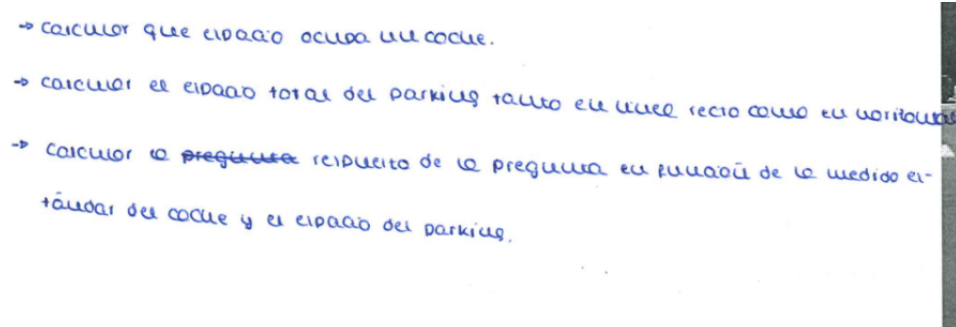 → calcular que espacio ocupa un coche.
→ calcular el espacio total del parking tanto en linea recta como en horizontal
→ calcular la pregunta respuesta de la pregunta en función de la medida es-
tándar del coche y el espacio del parking.